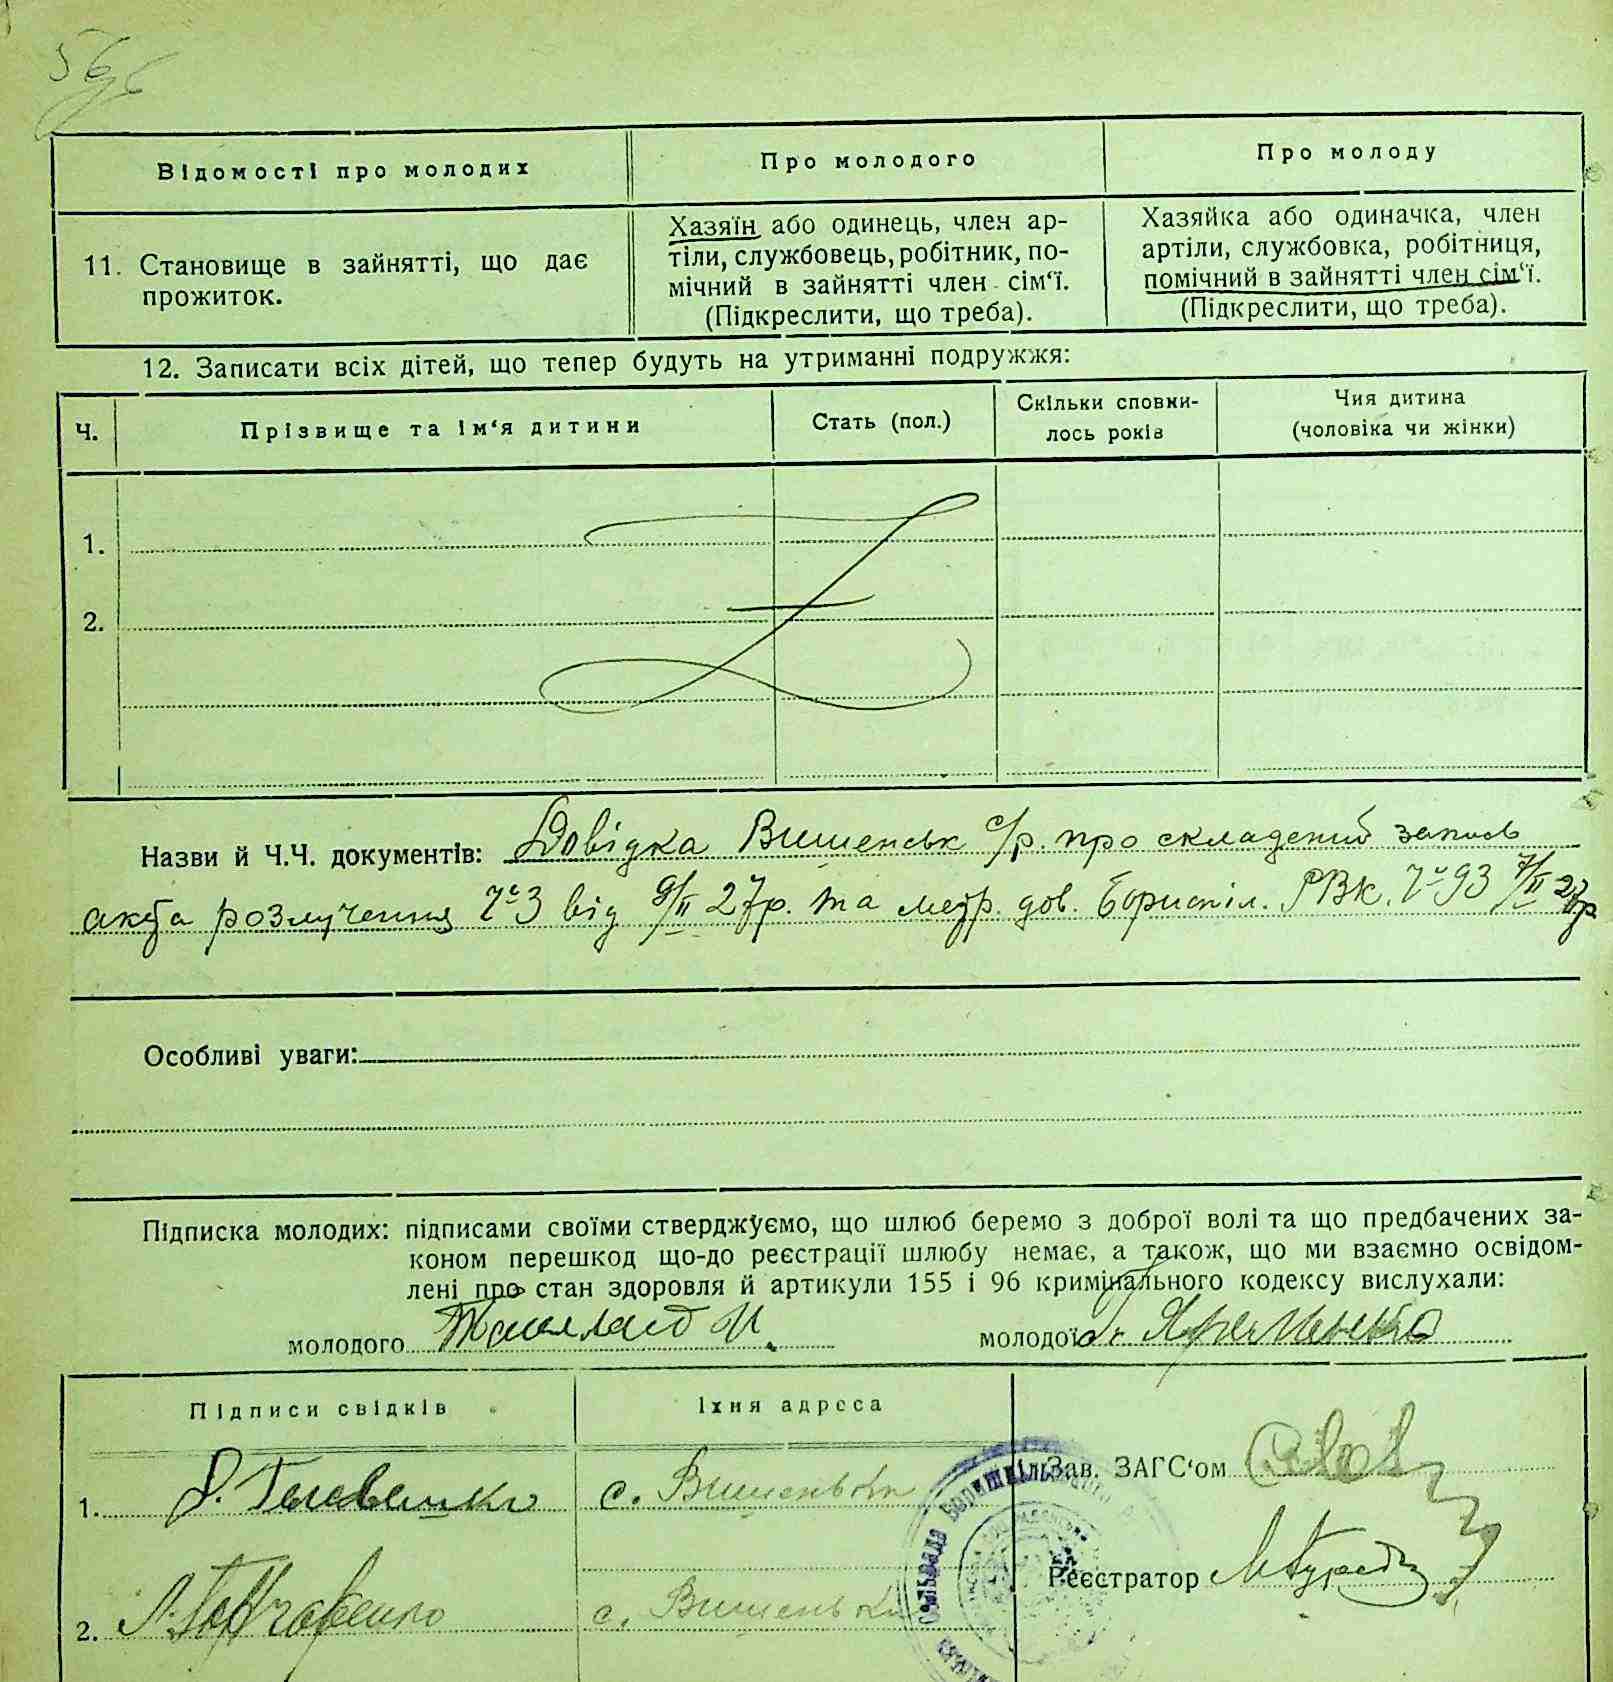 56
Відомості про молодих
Про молодого
Про молоду
11. Становище в зайнятті, що дає
прожиток.
Хазяїн або одинець, член ар-
тіли, службовець, робітник, по-
мічний в зайнятті член сім‘ї.
(Підкреслити, що треба).
Хазяйка або одиначка, член
артіли, службовка, робітниця,
помічний в зайнятті член сім‘ї.
(Підкреслити, що треба).
12. Записати всіх дітей, що тепер будуть на утриманні подружжя:
Ч.
Прізвище та ім‘я дитини
Стать (пол.)
Скільки сповни-
лось років
Чия дитина
(чоловіка чи жінки)
1.
2.
Назви й Ч.Ч. документів: Довідка Вишенськ с/р. про складений запись
акта розлучення Ч 3 від 9/II 27р. та метр. дов. Бориспіл. РВК. Ч 93 7/II 27р.
Особливі уваги:
Підписка молодих: підписами своїми стверджуємо, що шлюб беремо з доброї волі та що предбачених за-
коном перешкод що-до реєстрації шлюбу немає, а також, що ми взаємно освідом-
лені про стан здоровля й артикули 155 і 96 кримінального кодексу вислухали:
молодого
молодої Яременко
Підписи свідків
Їхня адреса
1.
с. Вишеньки
Зав. ЗАГС‘ом
Реєстратор
2.
с. Вишеньки
Сільрада Бориспільського